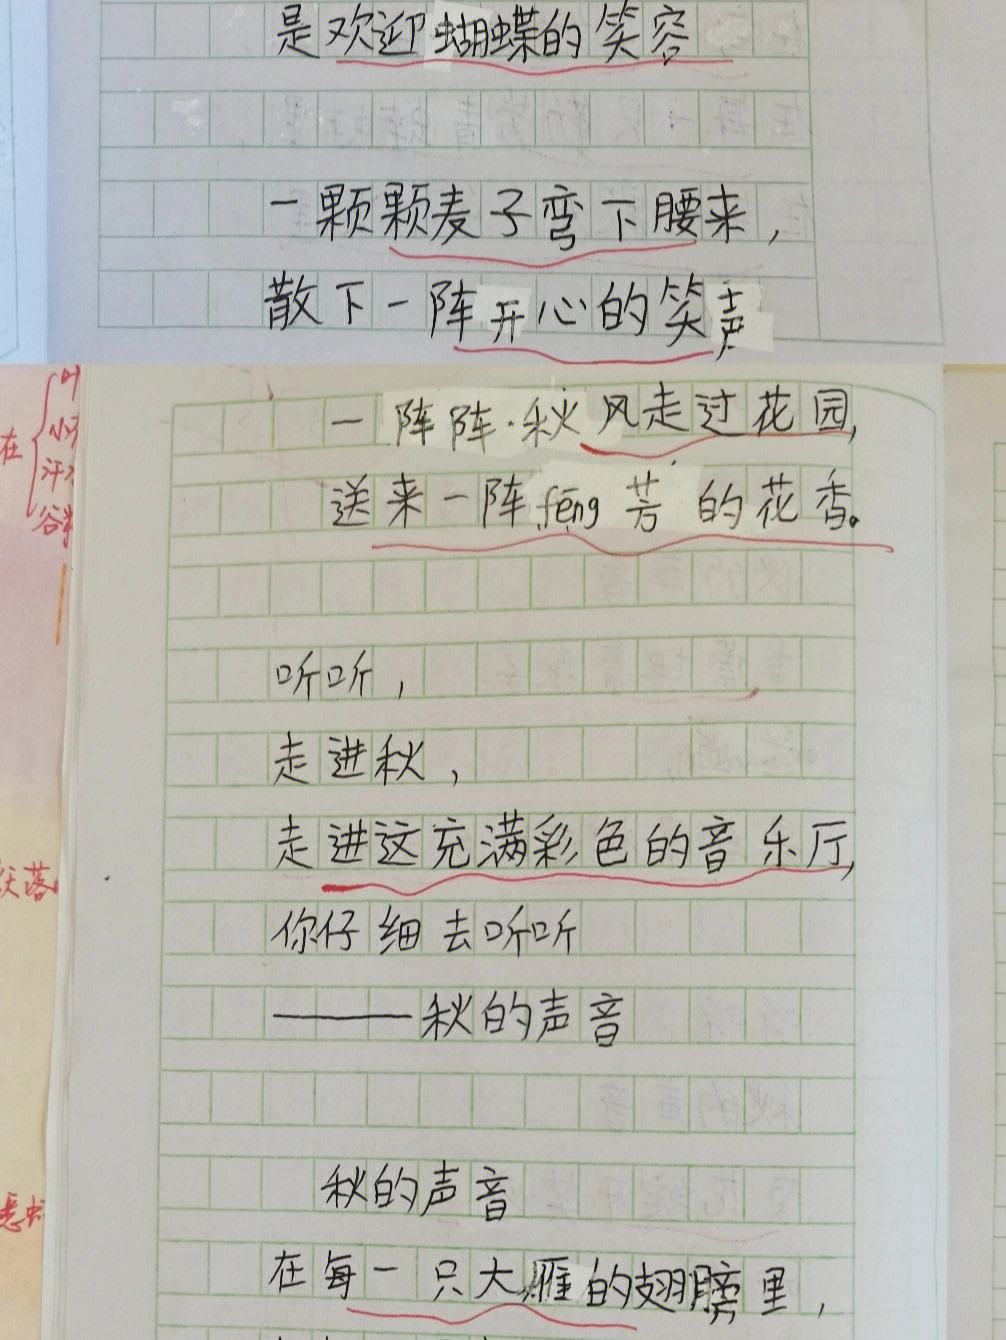 是欢迎蝴蝶的笑容
一颗颗麦子弯下腰来，
散下一阵开心的笑声
一阵阵秋风走过花园，
送来一阵fēng芳的花香。
听听，
走进秋，
走进这充满彩色的音乐厅，
你仔细去听听
———秋的声音
秋的声音
在每一只大雁的翅膀里，
在